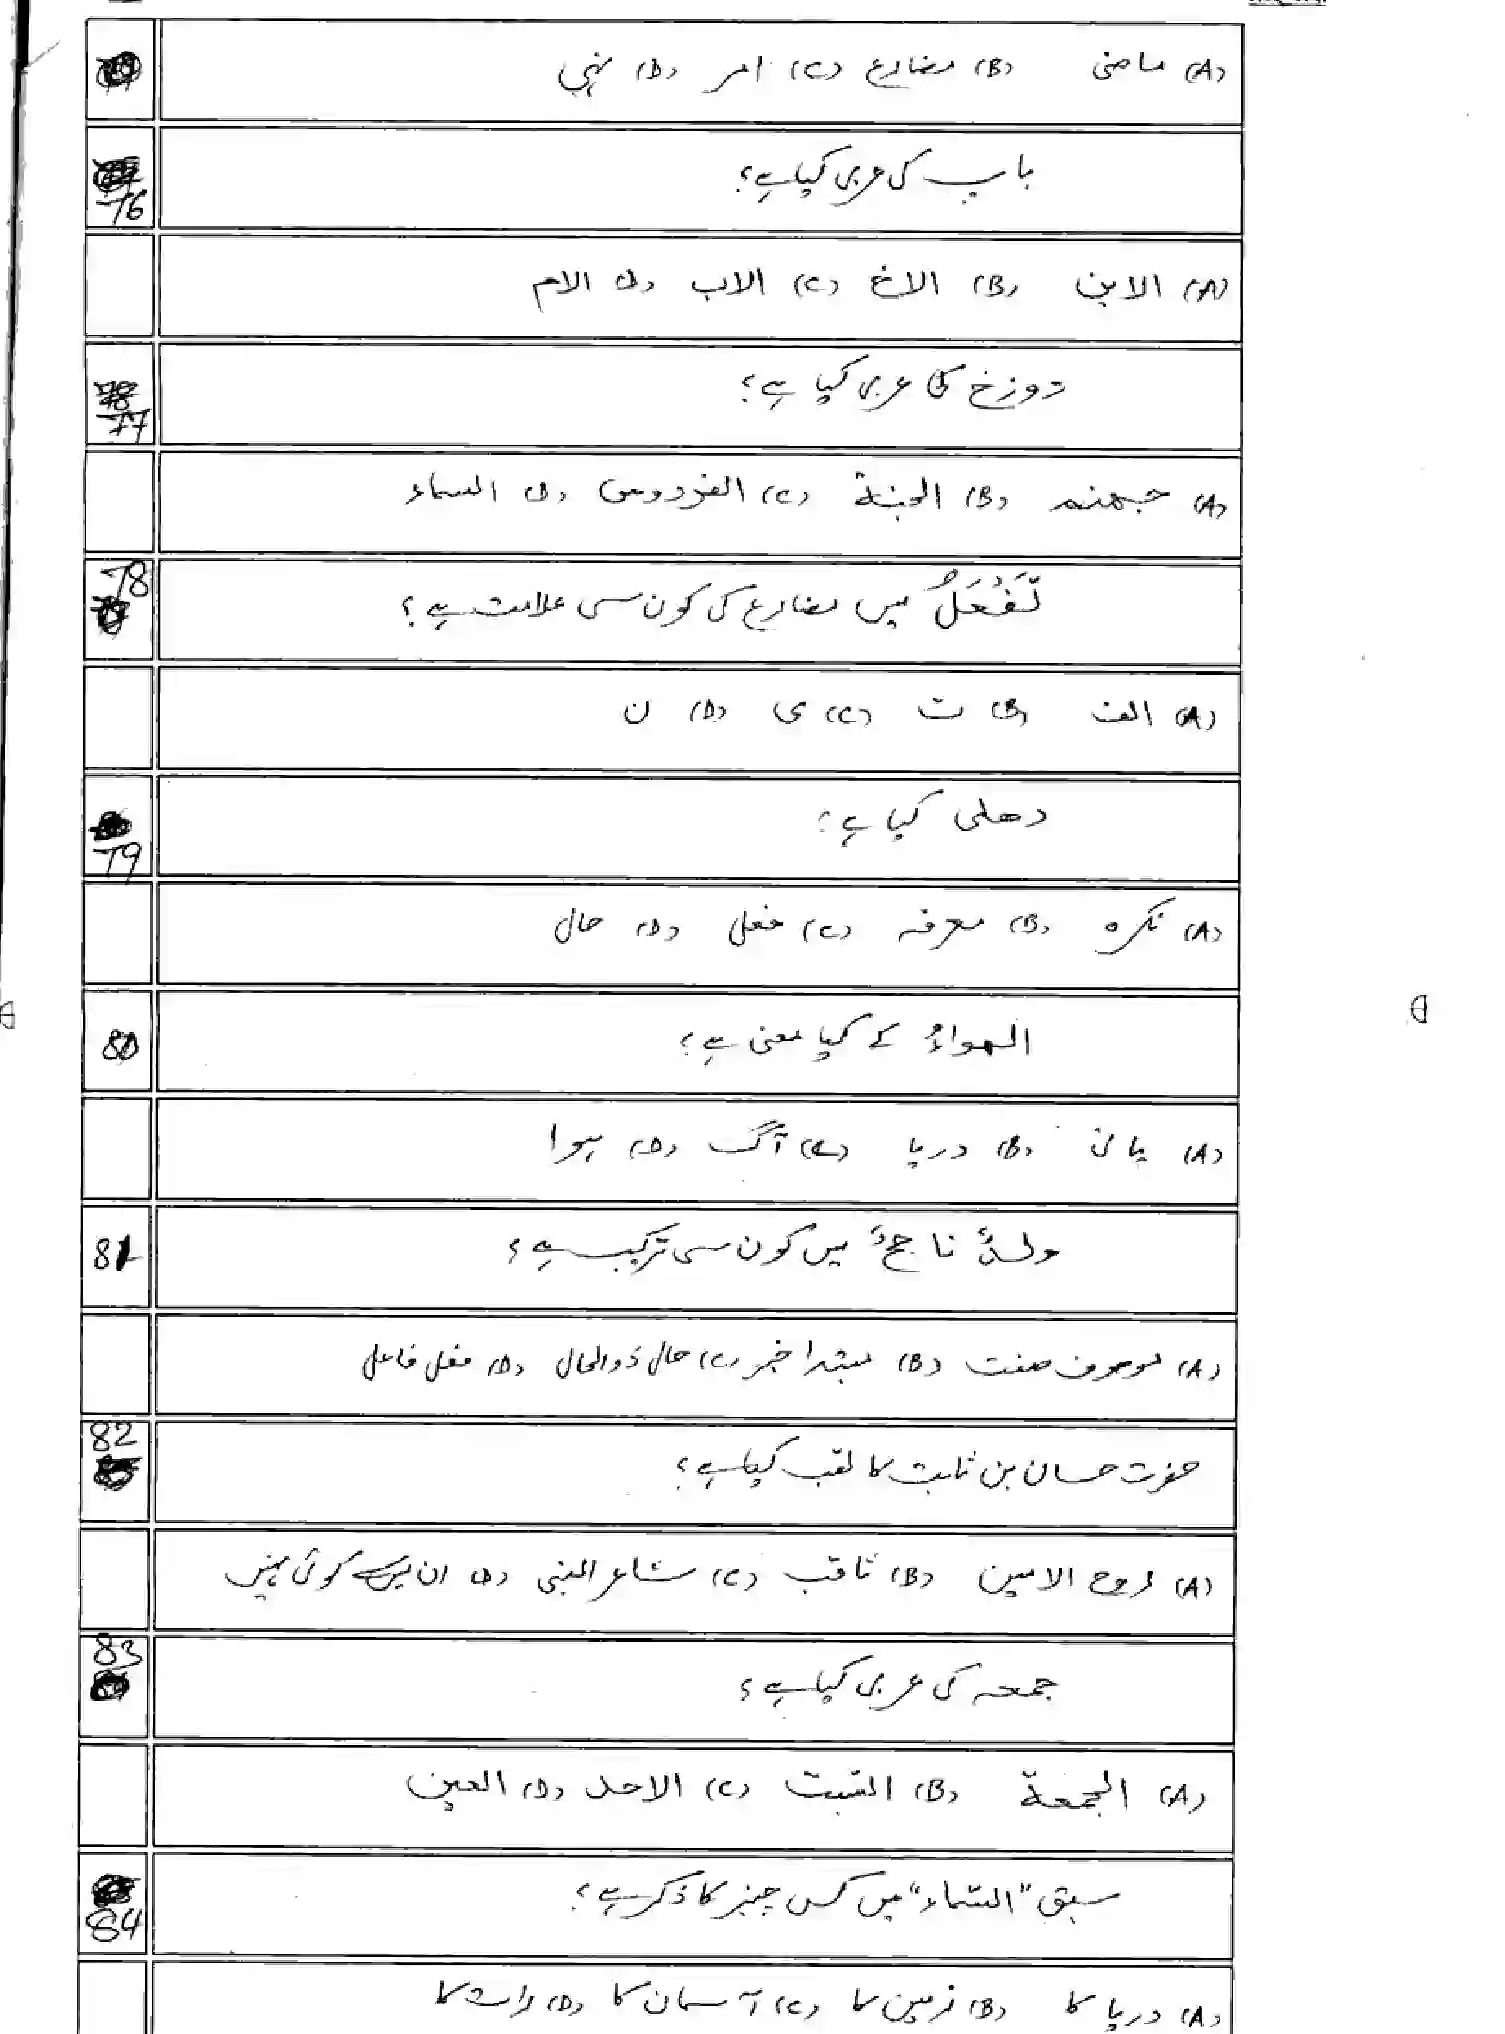 (A) ماضی (B) مضارع (C) امر (D) نہی
76 باپ کی عربی کیا ہے؟
(A) الابن (B) الاخ (C) الاب (D) الام
77 دوزخ کی عربی کیا ہے؟
(A) جہنم (B) الجنة (C) الفردوس (D) السماء
78 تَفْعَلُ میں مضارع کی کون سی علامت ہے؟
(A) الف (B) ت (C) ی (D) ن
79 دھلی کیا ہے؟
(A) نکرہ (B) معرفہ (C) فعل (D) حال
80 الهواءُ کے کیا معنی ہے؟
(A) پانی (B) دریا (C) آگ (D) ہوا
81 ولدٌ ناجحٌ میں کون سی ترکیب ہے؟
(A) موصوف صفت (B) مبتدا خبر (C) حال ذوالحال (D) فعل فاعل
82 حضرت حسان بن ثابت کا لقب کیا ہے؟
(A) روح الامین (B) ثاقب (C) شاعر النبی (D) ان میں سے کوئی نہیں
83 جمعہ کی عربی کیا ہے؟
(A) الجمعة (B) السّبت (C) الاحد (D) العین
84 سبق "السّماء" میں کس چیز کا ذکر ہے؟
(A) دریا کا (B) زمین کا (C) آسمان کا (D) رات کا